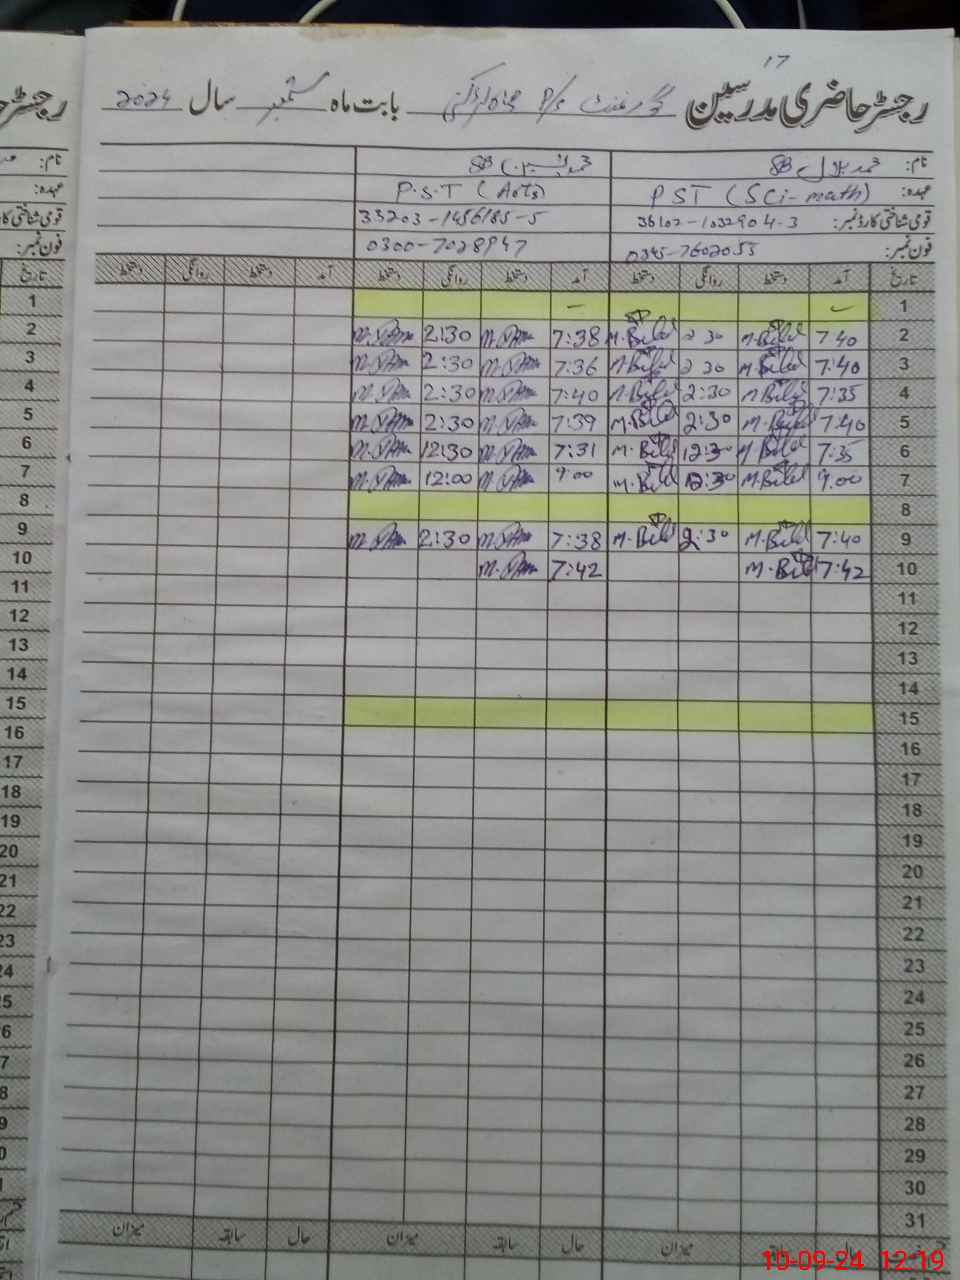 17
رجسٹر حاضری مدرسین گورنمنٹ P/S بابت ماہ ستمبر سال 2024
نام: محمد بلال SB
عہدہ: PST (Sci-math) P.S.T (Arts)
قومی شناختی کارڈ نمبر: 36102-1032904-3 33203-1456185-5
فون نمبر: 0345-7602055 0300-7028947
تاریخ آمد دستخط روانگی دستخط آمد دستخط روانگی دستخط آمد دستخط روانگی دستخط
1
2 7 40 M.Bilal 2 30 M.Bilal 7:38 2:30
3 7:40 M.Bilal 2 30 M.Bilal 7:36 2:30
4 7:35 M.Bilal 2:30 M.Bilal 7:40 2:30
5 7:40 M.Bilal 2:30 M.Bilal 7:39 2:30
6 7:35 M.Bilal 12:30 M.Bilal 7:31 12:30
7 9.00 M.Bilal 12:30 M.Bilal 9:00 12:00
8
9 7:40 M.Bilal 2:30 M.Bilal 7:38 2:30
10 7:42 M.Bilal 7:42
11
12
13
14
15
16
17
18
19
20
21
22
23
24
25
26
27
28
29
30
31
حال سابقہ میزان حال سابقہ میزان حال سابقہ میزان
10-09-24 12:19